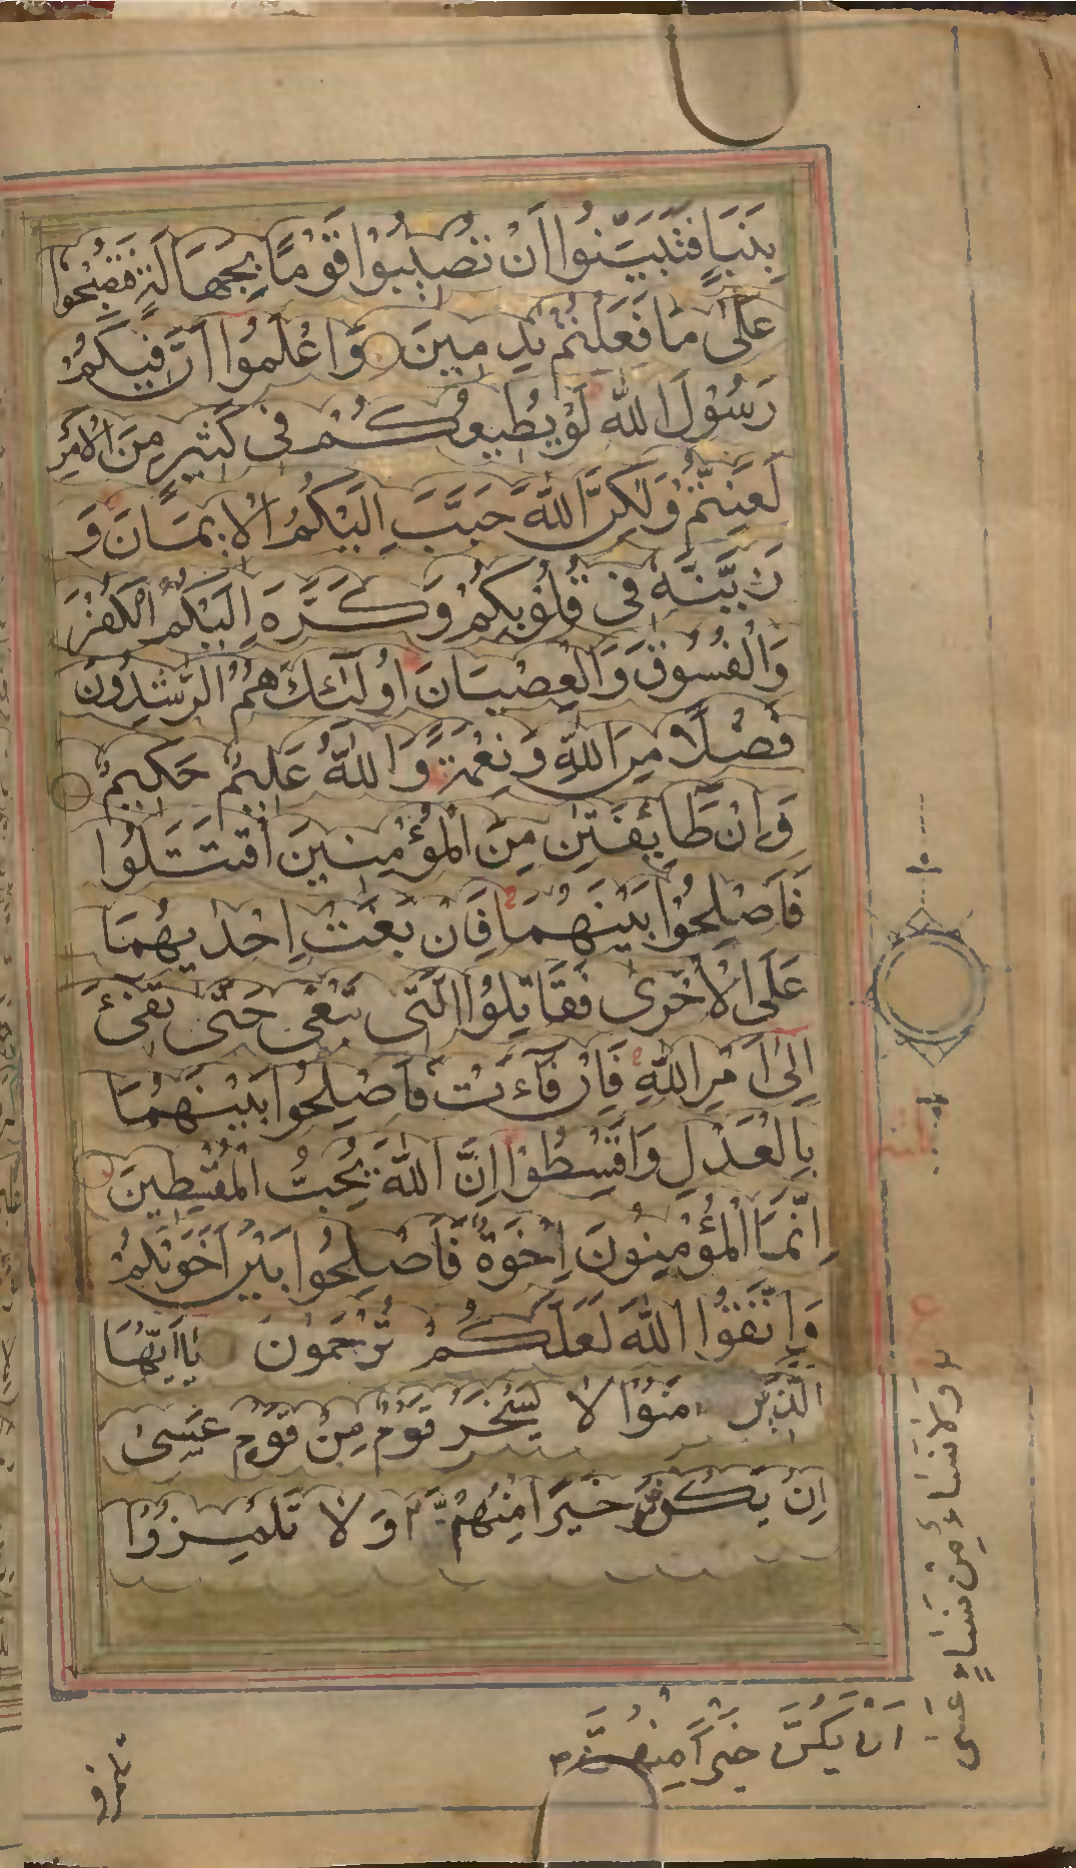 بِنَبَإٍ فَتَبَيَّنُوا أَنْ تُصِيبُوا قَوْمًا بِجَهَالَةٍ فَتُصْبِحُوا
عَلَىٰ مَا فَعَلْتُمْ نَادِمِينَ وَاعْلَمُوا أَنَّ فِيكُمْ
رَسُولَ اللَّهِ لَوْ يُطِيعُكُمْ فِي كَثِيرٍ مِنَ الْأَمْرِ
لَعَنِتُّمْ وَلَٰكِنَّ اللَّهَ حَبَّبَ إِلَيْكُمُ الْإِيمَانَ وَ
زَيَّنَهُ فِي قُلُوبِكُمْ وَكَرَّهَ إِلَيْكُمُ الْكُفْرَ
وَالْفُسُوقَ وَالْعِصْيَانَ أُولَٰئِكَ هُمُ الرَّشِدُونَ
فَضْلًا مِنَ اللَّهِ وَنِعْمَةً وَاللَّهُ عَلِيمٌ حَكِيمٌ
وَإِنْ طَائِفَتٰنِ مِنَ الْمُؤْمِنِينَ اقْتَتَلُوا
فَأَصْلِحُوا بَيْنَهُمَا فَإِنْ بَغَتْ إِحْدٰيهُمَا
عَلَى الْأُخْرَىٰ فَقَاتِلُوا الَّتِي تَبْغِي حَتَّىٰ تَفِيءَ
إِلَىٰ أَمْرِ اللَّهِ فَإِنْ فَآءَتْ فَأَصْلِحُوا بَيْنَهُمَا
بِالْعَدْلِ وَأَقْسِطُوا إِنَّ اللَّهَ يُحِبُّ الْمُقْسِطِينَ
إِنَّمَا الْمُؤْمِنُونَ إِخْوَةٌ فَأَصْلِحُوا بَيْنَ أَخَوَيْكُمْ
وَاتَّقُوا اللَّهَ لَعَلَّكُمْ تُرْحَمُونَ يَاأَيُّهَا
الَّذِينَ اٰمَنُوا لَا يَسْخَرْ قَوْمٌ مِنْ قَوْمٍ عَسَىٰ
اَنْ يَكُنَّ خَيْرًا مِنْهُنَّ وَلَا تَلْمِزُوا
وَلَا نِسَاءٌ مِنْ نِسَاءٍ عَسَىٰ
اَنْ يَكُنَّ خَيْرًا مِنْهُنَّ